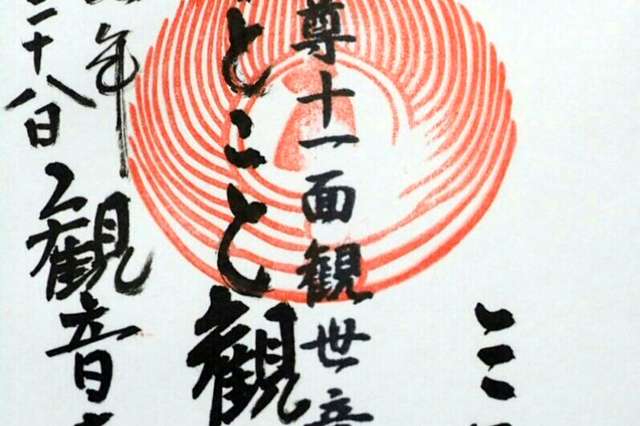 三
尊十一面観世音
とことこと観
年
二十八日
観音